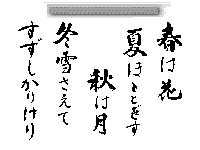 春は花
夏ほとゝぎす
秋は月
冬雪さえて
すずしかりけり